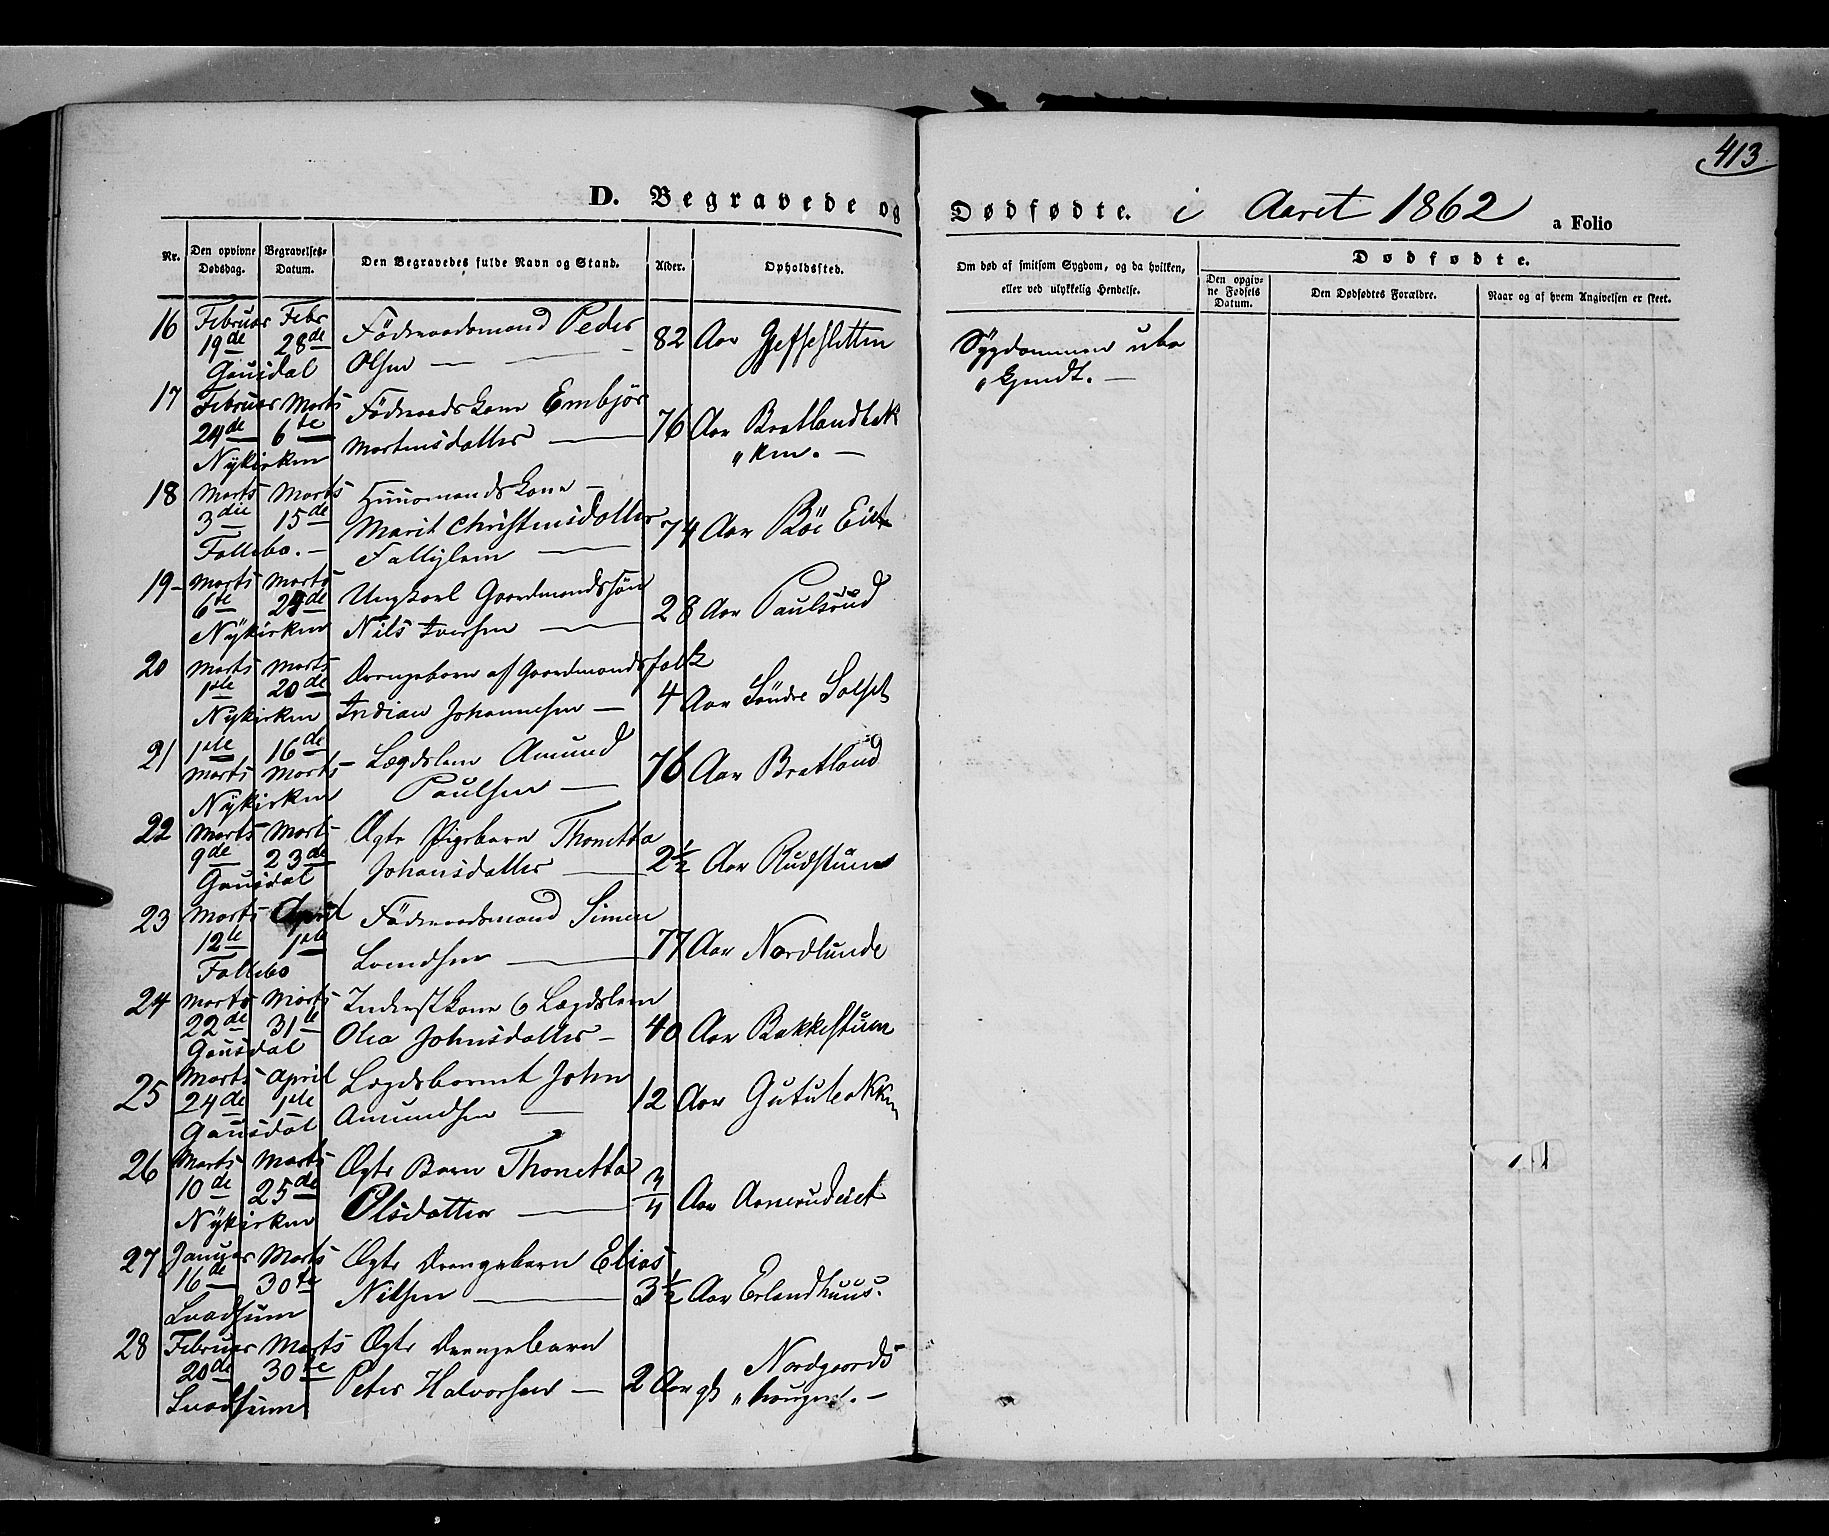 413.
D. Begravede og Dødfødte. i Aaret 1862 a Folio
Nr. Den opgivne Dødsdag. Begravelses-Datum. Den Begravedes fulde Navn og Stand. Alder. Opholdssted.
Om død af smitsom Sygdom, og da hvilken, eller ved ulykkelig Hendelse.
Dødfødte.
Den opgivne Fødsels Datum. Den Dødfødtes Forældre. Naar og af hvem Angivelsen er skeet.
16 Februar Febr Föderaadsmand Peder
19de 28de 82 Aar
Gausdal Olsen —
Sygdommen ube
"kjendt. —
17 Februar Marts Föderaadskone Embjör
24de 6te Mortensdatter — 76 Aar Bratlandbak
Nykirken "ken. —
18 Marts Marts Huusmandskone —
3die 15de Marit Christensdatter 74 Aar Böe Eiet
Follebo. — —
19 – Marts Marts Ungkarl Gaardmandssön
6te 28 Aar Paulsrud
Nykirken Nils Iversen —
20 Marts Marts Drengebarn af Gaardmandsfolk
1ste 20de 4 Aar Söndre Solset
Nykirken Indian Johannesen —
21 1ste 16de Lægdslem Amund
Marts Marts Paulsen — 76 Aar Bratland
Nykirken
22 Marts Marts Ægte Pigebarn Thonetta
9de 23de Johansdatter — 2½ Aar Rudstuen
Gausdal
23 Marts April Föderaadsmand Simen
12te 1ste — 77 Aar Nordlunde
Follebo
24 Marts Marts Inderstkone & Lægdslem
22de 31te Olea Johnsdatter — 40 Aar Bakkestuen
Gausdal
25 Marts April Lægdsbarnet John
24de 1ste Amundsen — 12 Aar Gutubakken
Gausdal
26 Marts Marts Ægte Barn Thonetta
10de 25de Olsdatter — 3/4 Aar Aanerudeiet
Nykirken
27 Januar Marts Ægte Drengebarn Elias
16de 30te Nilsen — 3½ Aar Erlandhuus.
Svadsum
28 Februar Marts Ægte Drengebarn
20de 30te Peter Halvorsen — 2 Aar gl. Nordgaards
Svadsum "haugen. —